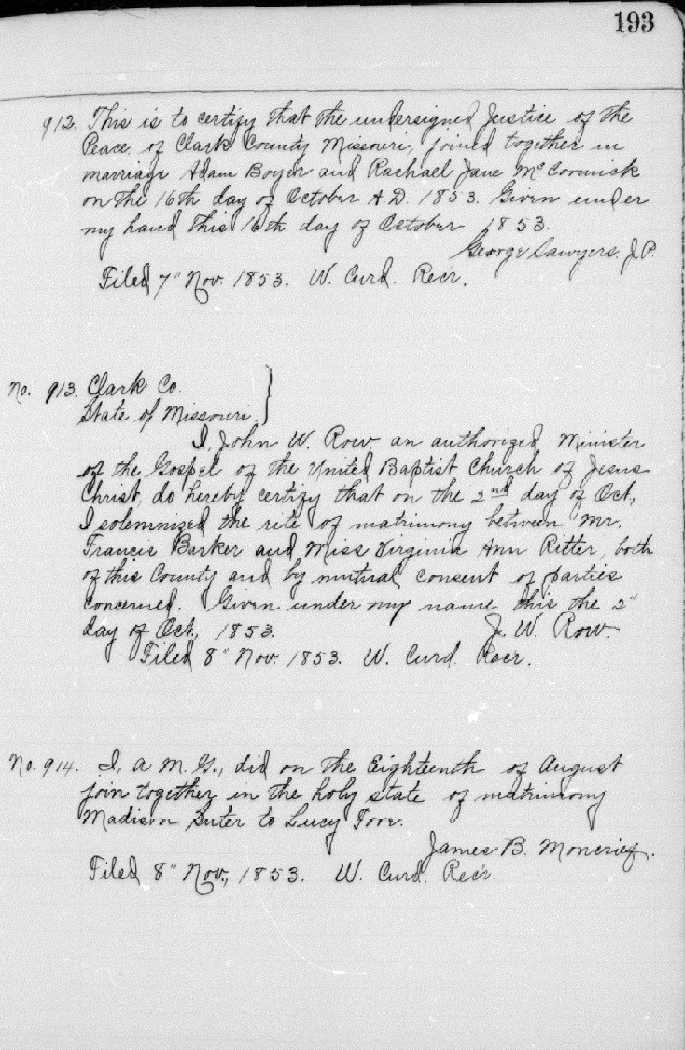 193
912. This is to certify that the undersigned Justice of the
Peace of Clark County Missouri, joined together in
marriage Adam Boyer and Rachael Jane McCormick
on the 16th day of October A.D. 1853. Given under
my hand this 16th day of October 1853.
George Sawyers. J.P.
Filed 7" Nov. 1853. W. Curd. Recr.
No. 913. Clark Co. }
State of Missouri. }
I, John W. Row an authorized Minister
of the Gospel of the United Baptist Church of Jesus
Christ, do hereby certify that on the 2nd day of Oct,
I solemnized the rite of matrimony between Mr.
Francis Barker and Miss Virginia Ann Ritter, both
of this County and by mutual consent of parties
concerned. Given under my name this the 2"
day of Oct, 1853. J. W. Row.
Filed 8" Nov. 1853. W. Curd. Recr.
No. 914. I, a M. G., did on the Eighteenth of August
join together in the holy state of matrimony
Madison Suter to Lucy Fore.
James B. Moncrief.
Filed 8" Nov., 1853. W. Curd. Recr